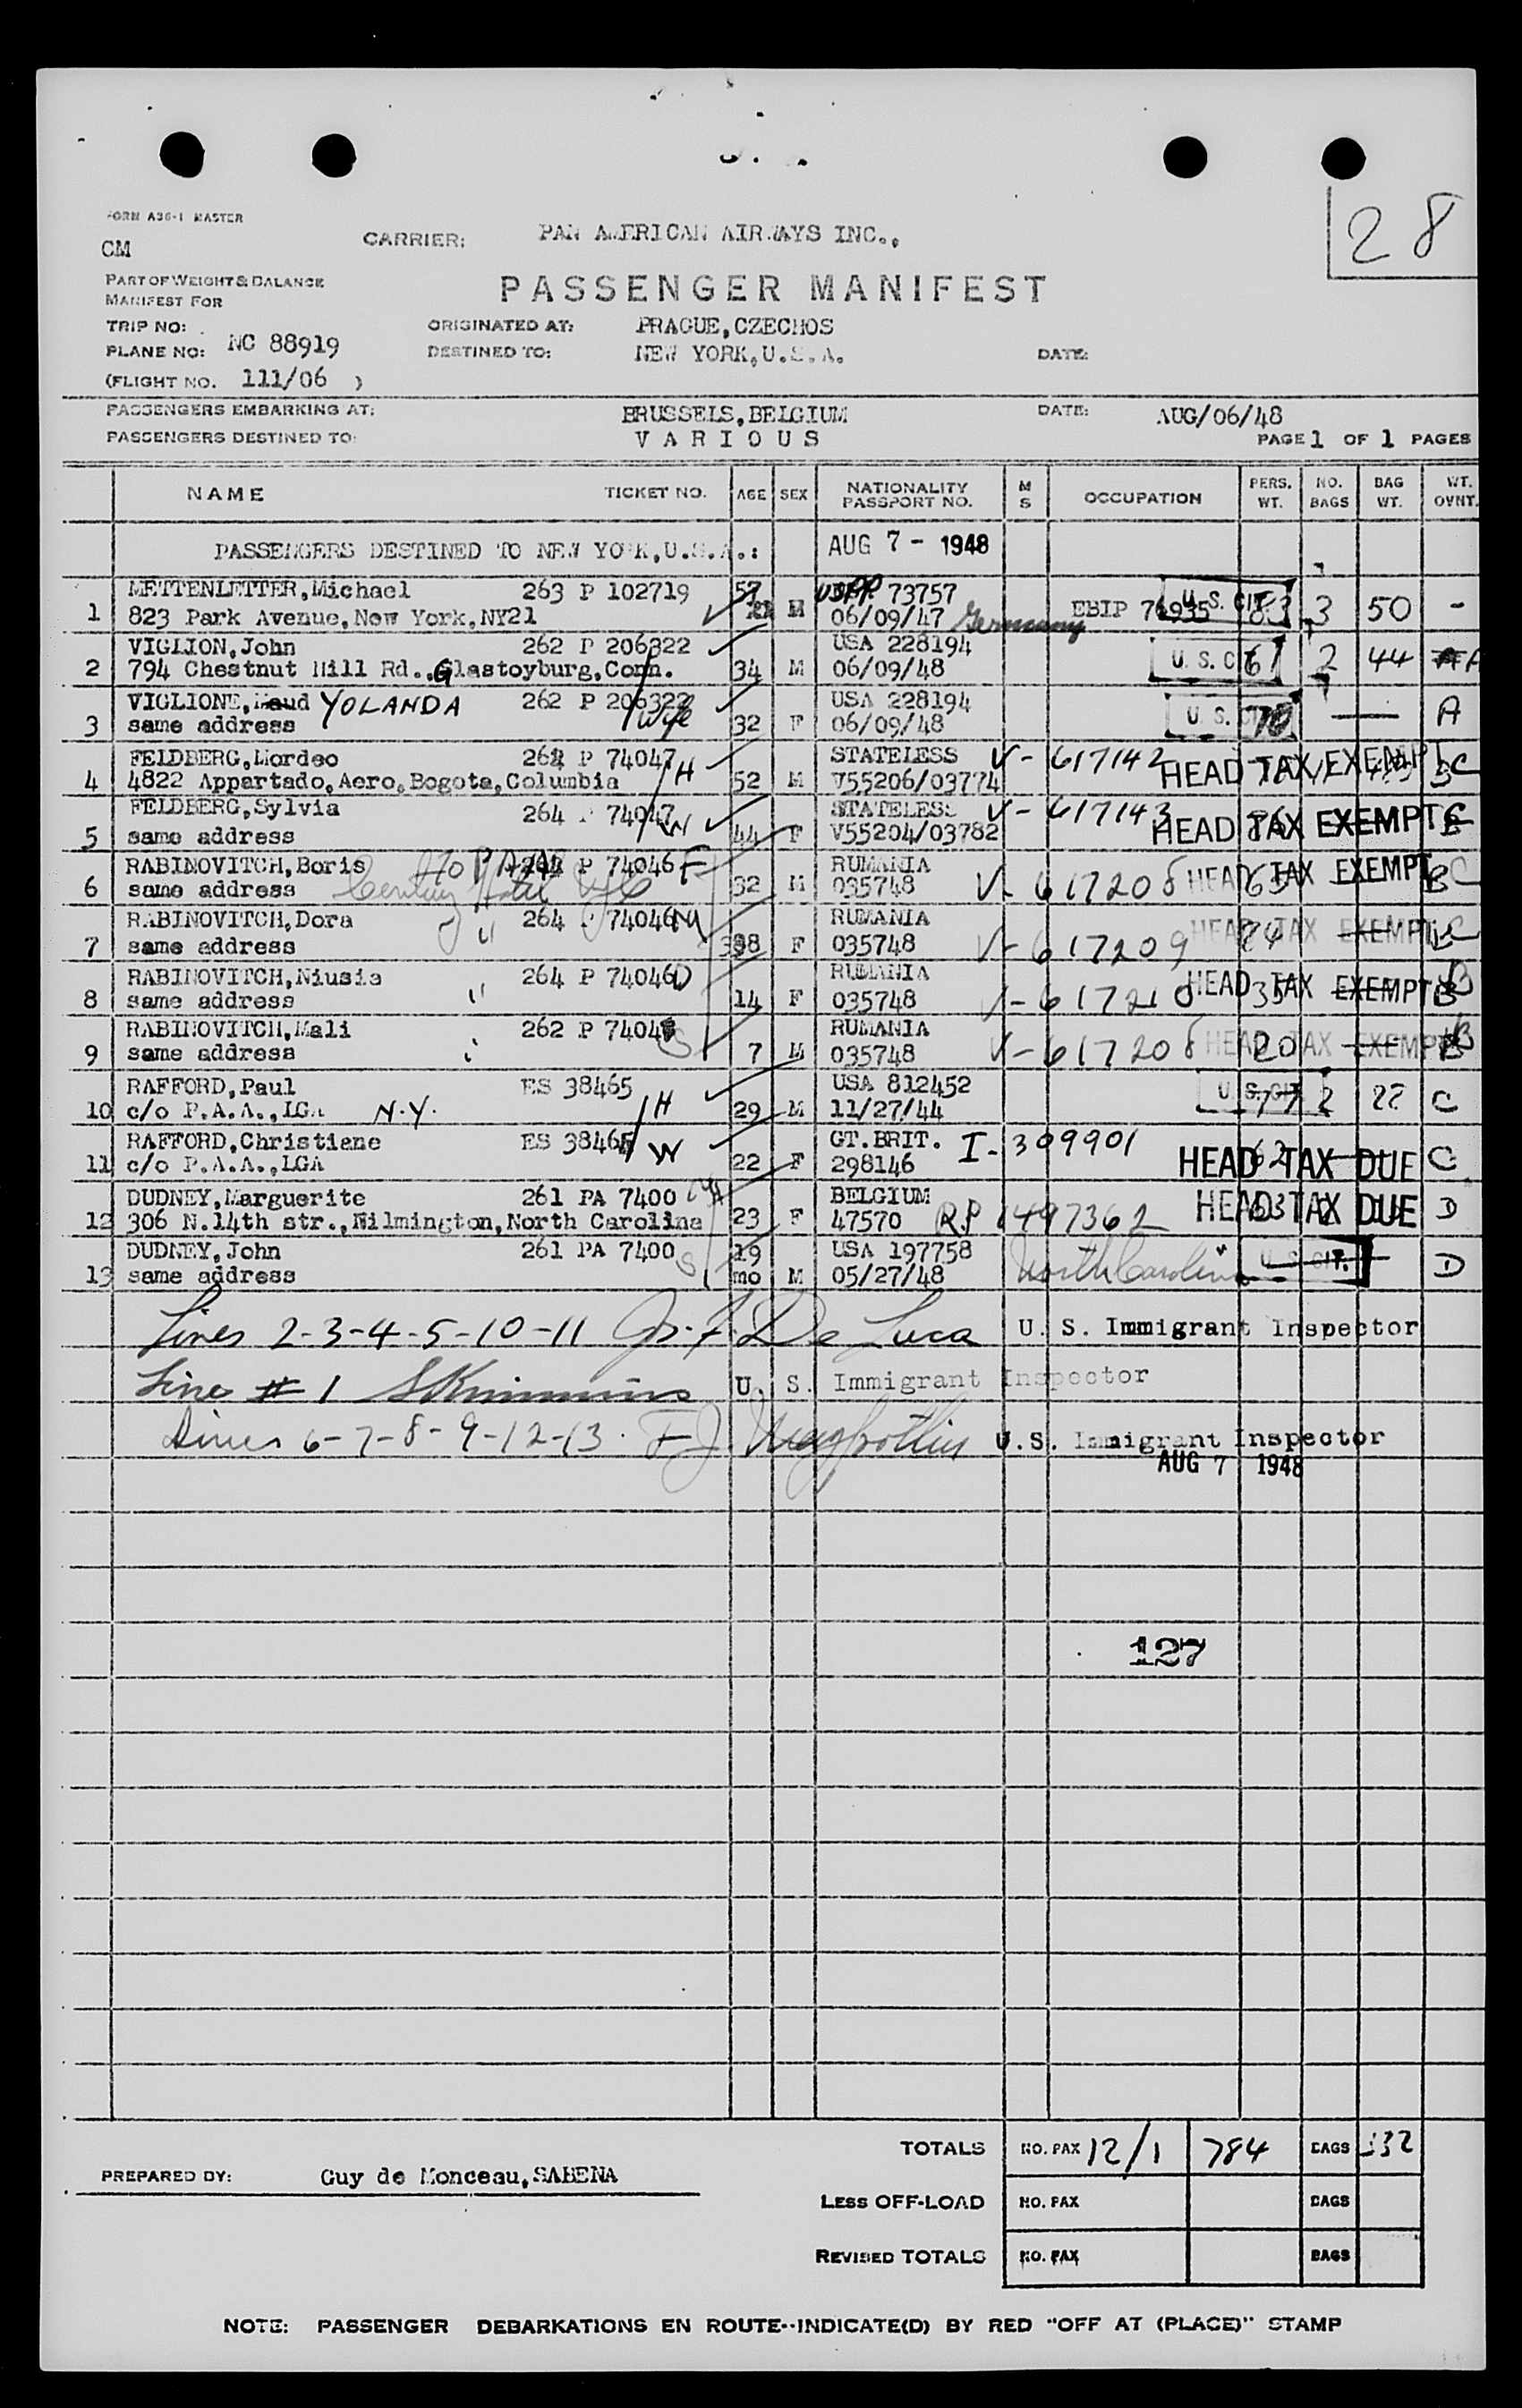 28
FORM A36-1 MASTER
CM
CARRIER: PAN AMERICAN AIRWAYS INC.,
PART OF WEIGHT & BALANCE
MANIFEST FOR
PASSENGER MANIFEST
TRIP NO:
ORIGINATED AT: PRAGUE,CZECHOS
PLANE NO: NC 88919
DESTINED TO: NEW YORK,U.S.A. DATE:
(FLIGHT NO. 111/06 )
PASSENGERS EMBARKING AT: BRUSSELS,BELGIUM DATE: AUG/06/48
PASSENGERS DESTINED TO: VARIOUS PAGE 1 OF 1 PAGES
NAME TICKET NO. AGE SEX NATIONALITY PASSPORT NO. M S OCCUPATION PERS. WT. NO. BAGS BAG WT. WT. OVNT.
PASSENGERS DESTINED TO NEW YORK,U.S.A.: AUG 7 - 1948
METTENLETTER,Michael 263 P 102719 57 USPP. 73757
1 823 Park Avenue,New York,NY21 M 06/09/47 Germany EBIP 76935 U.S. CIT. 83 3 50 -
VIGLION,John 262 P 206322 USA 228194
2 794 Chestnut Hill Rd.,Glastoyburg,Conn. 34 M 06/09/48 U.S. CIT 61 2 44 A
VIGLIONE,Maud YOLANDA 262 P 206322 wife USA 228194
3 same address 32 F 06/09/48 U.S. CIT 70 — A
FELDBERG,Mordeo 264 P 74047 H STATELESS V-617142
4 4822 Appartado,Aero,Bogota,Columbia 52 M V55206/03774 HEAD TAX EXEMPT C
FELDBERG,Sylvia 264 P 74047 W STATELESS V-617143
5 same address 44 F V55204/03782 HEAD TAX EXEMPT C
RABINOVITCH,Boris c/o PAA 264 P 74046 F RUMANIA
6 same address Century Hotel NYC 32 M 035748 V-617208 HEAD TAX EXEMPT C
RABINOVITCH,Dora 264 P 74046 M RUMANIA
7 same address " 38 F 035748 V-617209 HEAD TAX EXEMPT C
RABINOVITCH,Niusia 264 P 74046 D RUMANIA
8 same address " 14 F 035748 V-617210 HEAD TAX EXEMPT B
RABINOVITCH,Mali 262 P 74048 S RUMANIA
9 same address 7 M 035748 V-617208 HEAD TAX EXEMPT B
RAFFORD,Paul ES 38465 H USA 812452
10 c/o P.A.A.,LGA N.Y. 29 M 11/27/44 U.S. CIT. 77 2 22 C
RAFFORD,Christiane ES 38465 W GT.BRIT. I-309901
11 c/o P.A.A.,LGA 22 F 298146 62 HEAD TAX DUE C
DUDNEY,Marguerite 261 PA 7400 M BELGIUM
12 306 N.14th str.,Wilmington,North Carolina 23 F 47570 RP 1497362 HEAD TAX DUE D
DUDNEY,John 261 PA 7400 S 19 USA 197758
13 same address mo M 05/27/48 North Carolina U.S. CIT. D
Lines 2-3-4-5-10-11 De Luca U. S. Immigrant Inspector
Line # 1 U. S. Immigrant Inspector
Lines 6-7-8-9-12-13. F J U.S. Immigrant Inspector
AUG 7 1948
127
TOTALS NO. PAX 12/1 784 BAGS 332
PREPARED BY: Guy de Monceau,SABENA
LESS OFF-LOAD NO. PAX BAGS
REVISED TOTALS NO. PAX BAGS
NOTE: PASSENGER DEBARKATIONS EN ROUTE--INDICATE(D) BY RED "OFF AT (PLACE)" STAMP